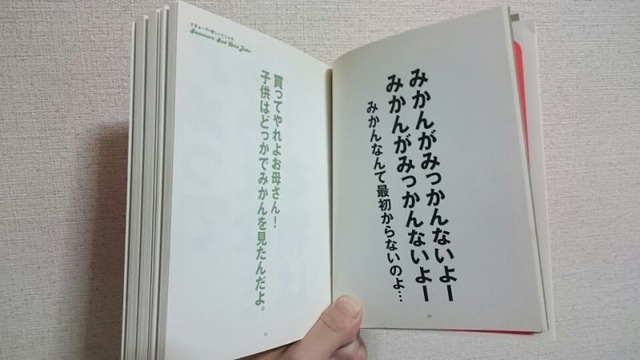 みかんがみっかんないよー
みかんがみっかんないよー
みかんなんて最初からないのよ…
買ってやれよお母さん！
子供はどっかでみかんを見たんだよ。